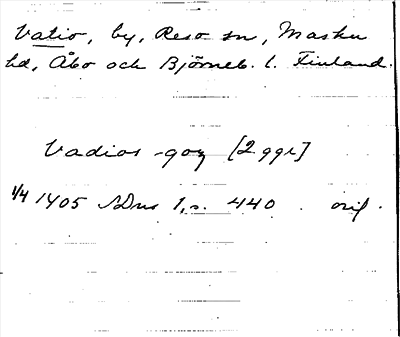 Vatio, by, Reso sn, Masku
hd, Åbo och Björneb. l. Finland.
Vadios-goz [2 ggr]
1/4 1405 SDns 1, s. 440 . orig.